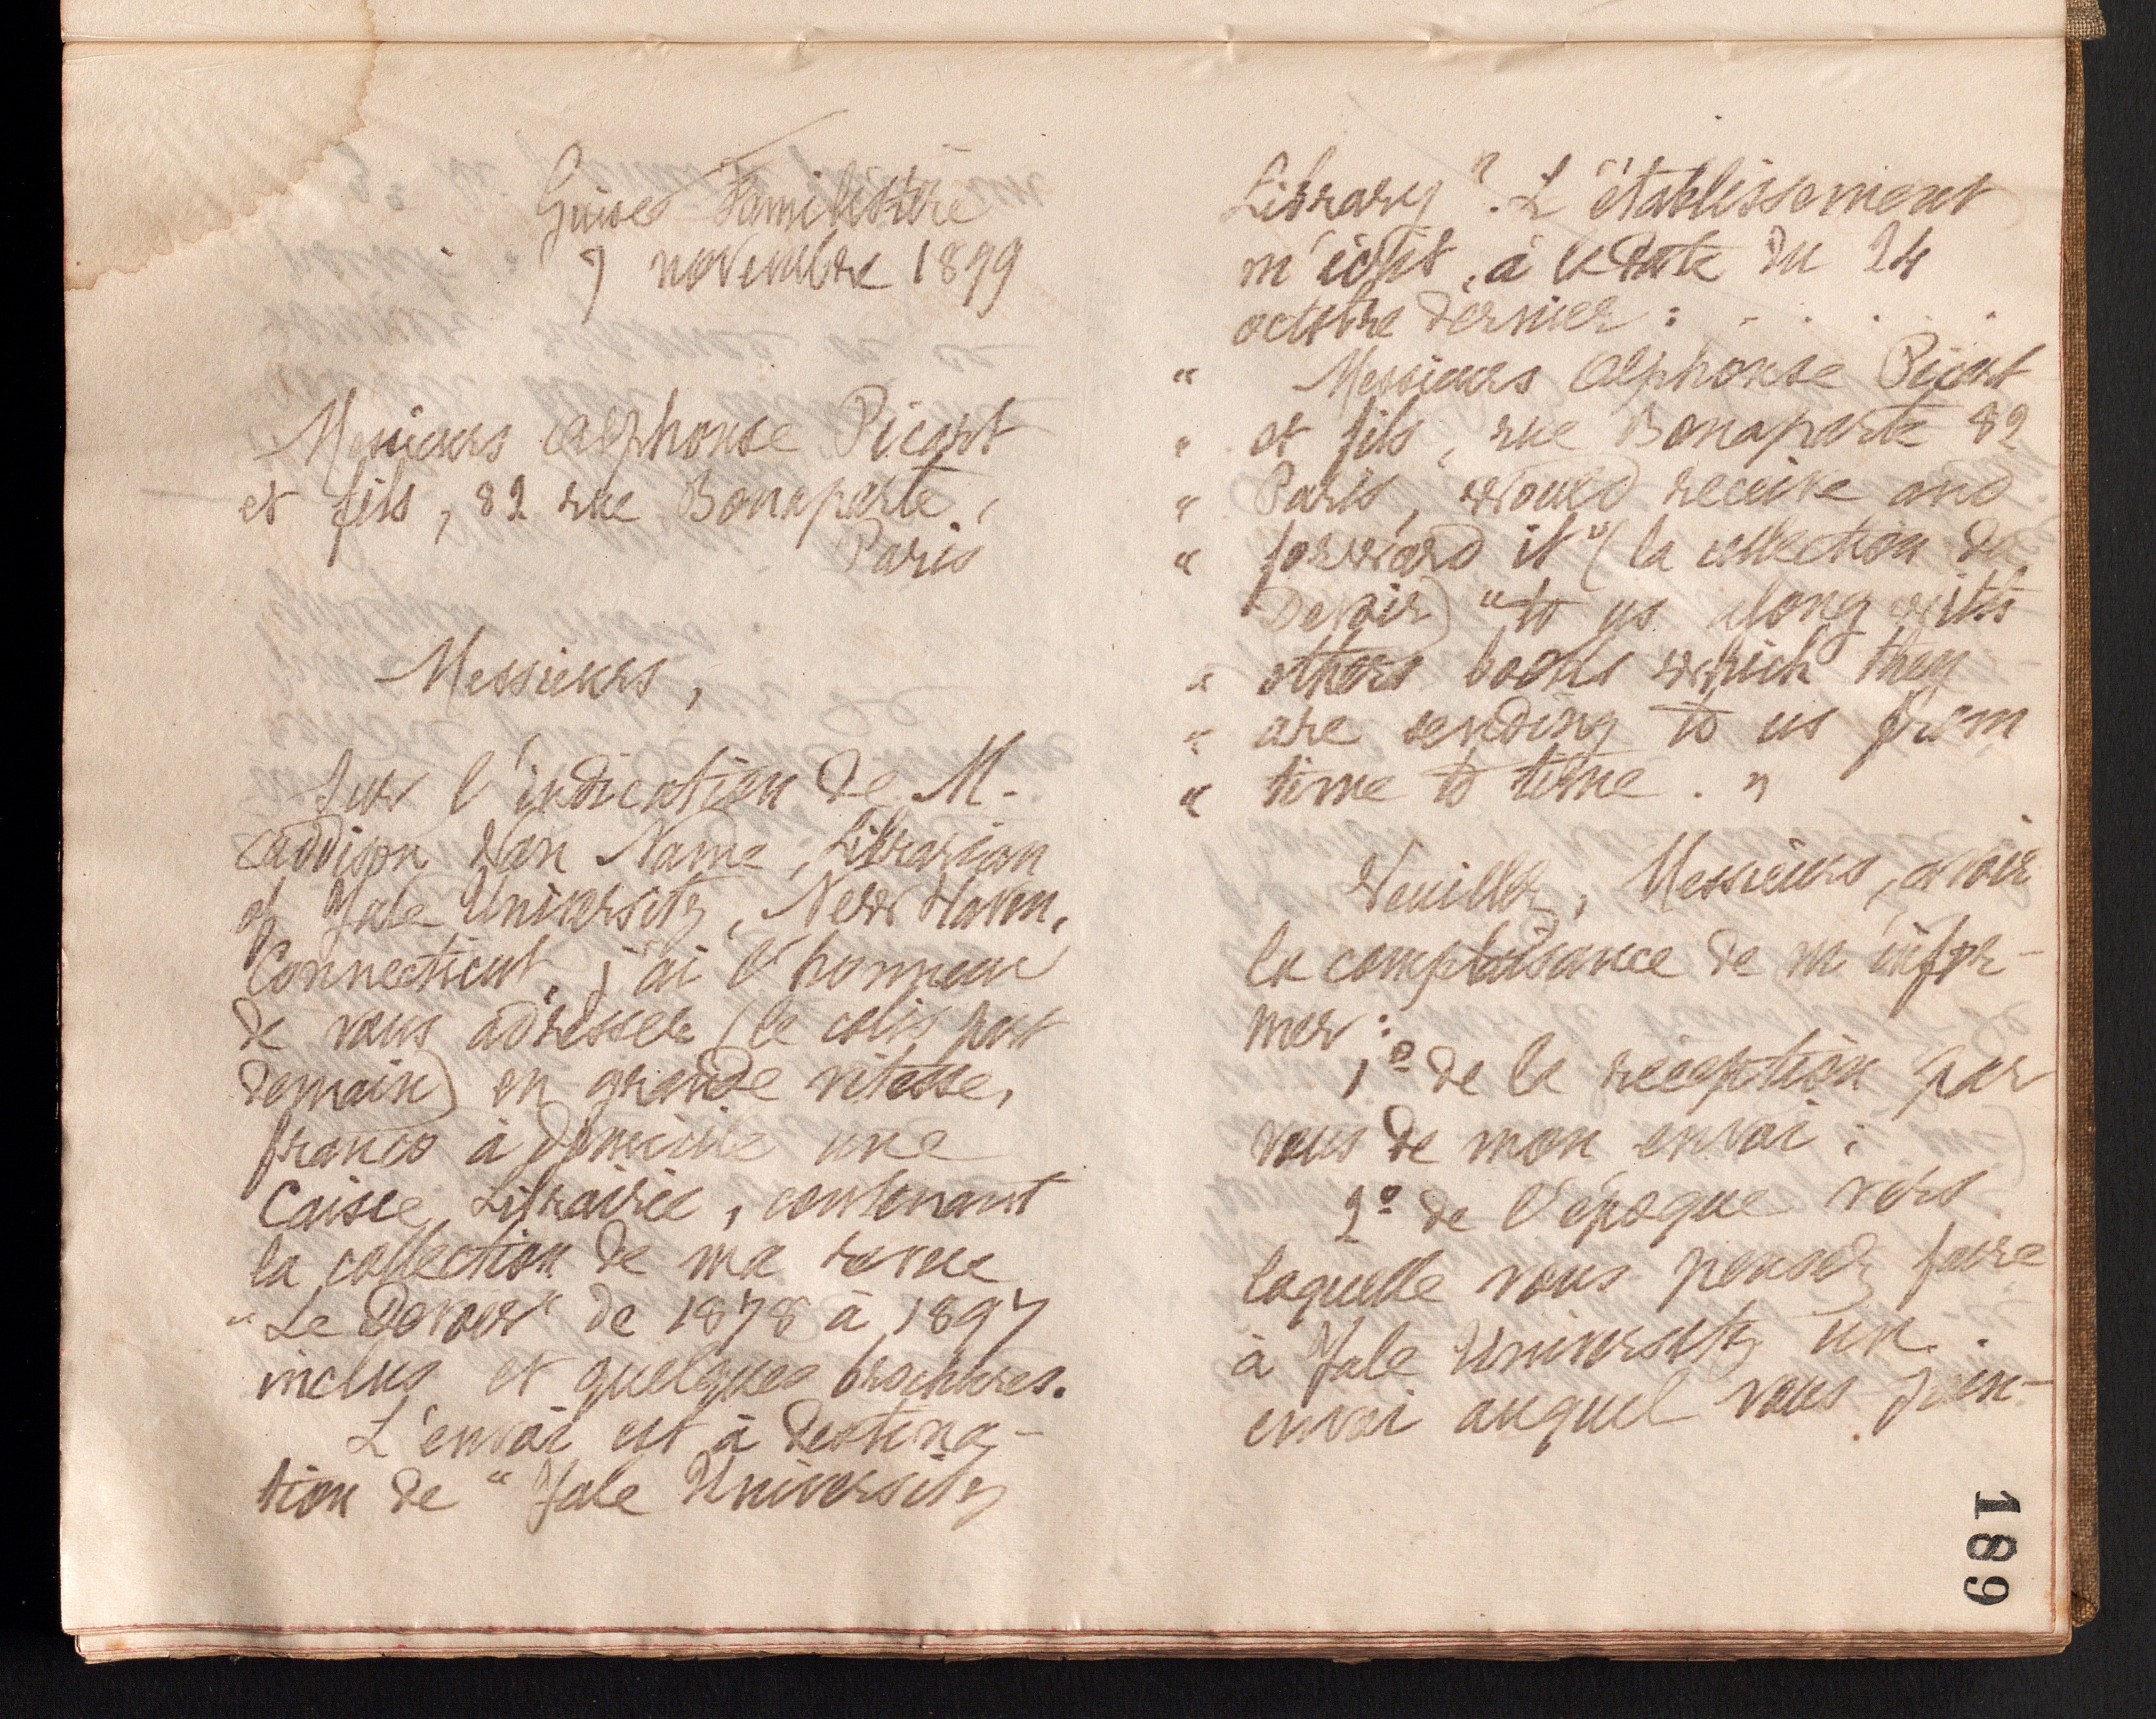 Guise Familistère
7 novembre 1899
Messieurs Alphonse Picart
et fils, 82 rue Bonaparte,
Paris
Messieurs,
Sur l'indication de M.
Addison Van Name, Librarian
of Yale University, New Haven,
Connecticut, j'ai l'honneur
de vous adresser (le colis part
demain) en grande vitesse,
franco à domicile une
Caisse Librairie, contenant
la collection de ma revue
"Le Devoir" de 1878 à 1897
inclus et quelques brochures.
L'envoi est à destina-
tion de "Yale University
Library". L'établissement
m'écrit, à la date du 24
octobre dernier : . . . . .
" Messieurs Alphonse Picart
" et fils, rue Bonaparte 82
" Paris, would receive and
" forward it" (la collection du
Devoir) "to us along with
" others books which they
" are sending to us from
" time to time. "
Veuillez, Messieurs, avoir
la complaisance de m'infor-
mer :
1º de la réception par
vous de mon envoi ;
2º de l'époque vers
laquelle vous pensez faire
à Yale University un
envoi auquel vous join-
189